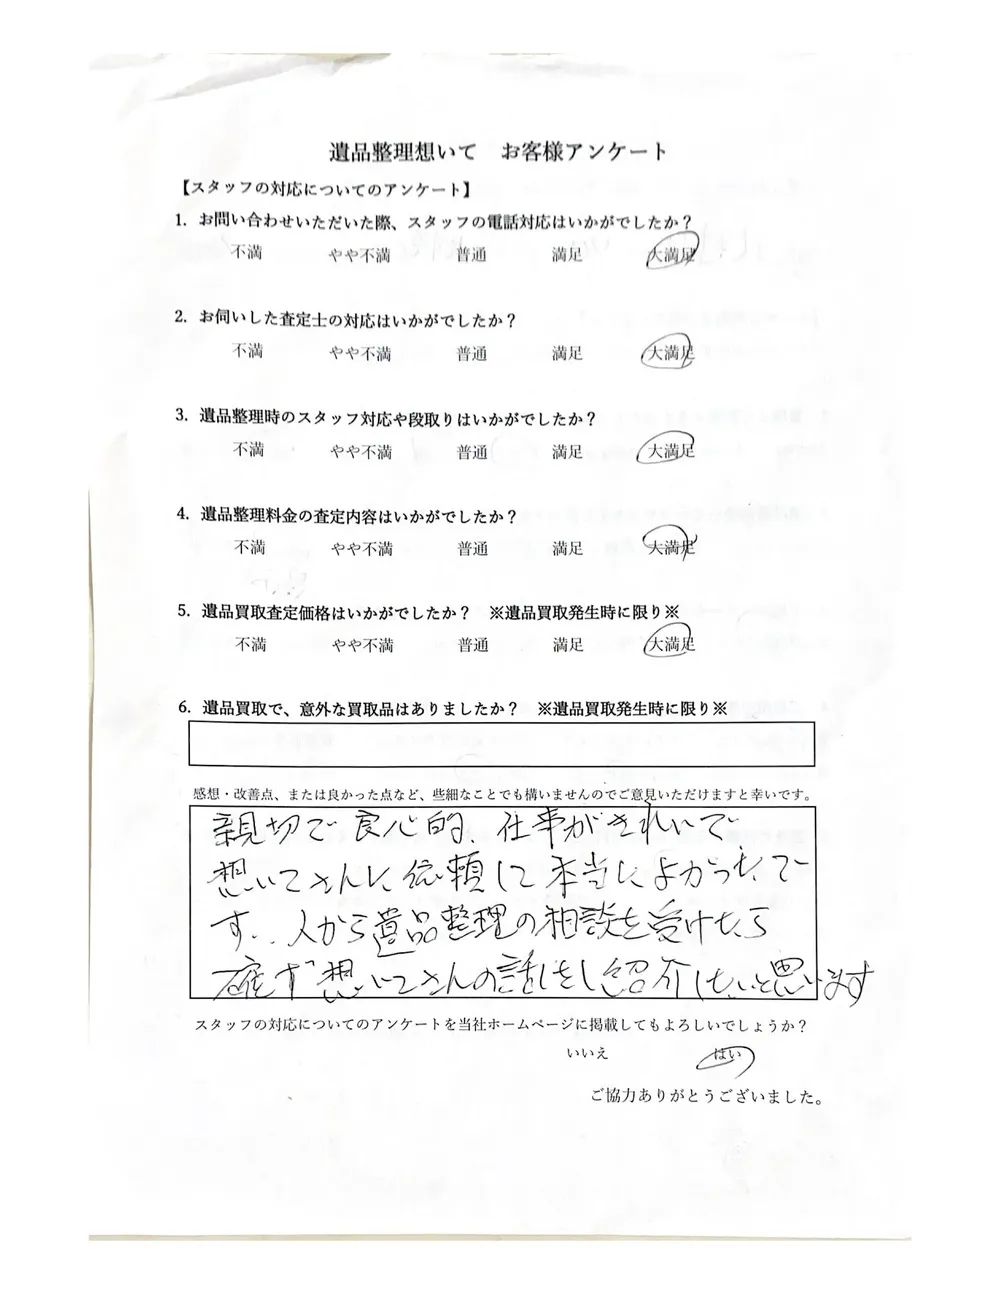 遺品整理想いて　お客様アンケート
【スタッフの対応についてのアンケート】
1. お問い合わせいただいた際、スタッフの電話対応はいかがでしたか？
不満　やや不満　普通　満足　大満足
2. お伺いした査定士の対応はいかがでしたか？
不満　やや不満　普通　満足　大満足
3. 遺品整理時のスタッフ対応や段取りはいかがでしたか？
不満　やや不満　普通　満足　大満足
4. 遺品整理料金の査定内容はいかがでしたか？
不満　やや不満　普通　満足　大満足
5. 遺品買取査定価格はいかがでしたか？　※遺品買取発生時に限り※
不満　やや不満　普通　満足　大満足
6. 遺品買取で、意外な買取品はありましたか？　※遺品買取発生時に限り※
感想・改善点、または良かった点など、些細なことでも構いませんのでご意見いただけますと幸いです。
親切で良心的、仕事がきれいで、
想いてさんに依頼して本当によかったで
す。人から遺品整理の相談を受けたら
必ず想いてさんの話しをし紹介したいと思います
スタッフの対応についてのアンケートを当社ホームページに掲載してもよろしいでしょうか？
いいえ　はい
ご協力ありがとうございました。